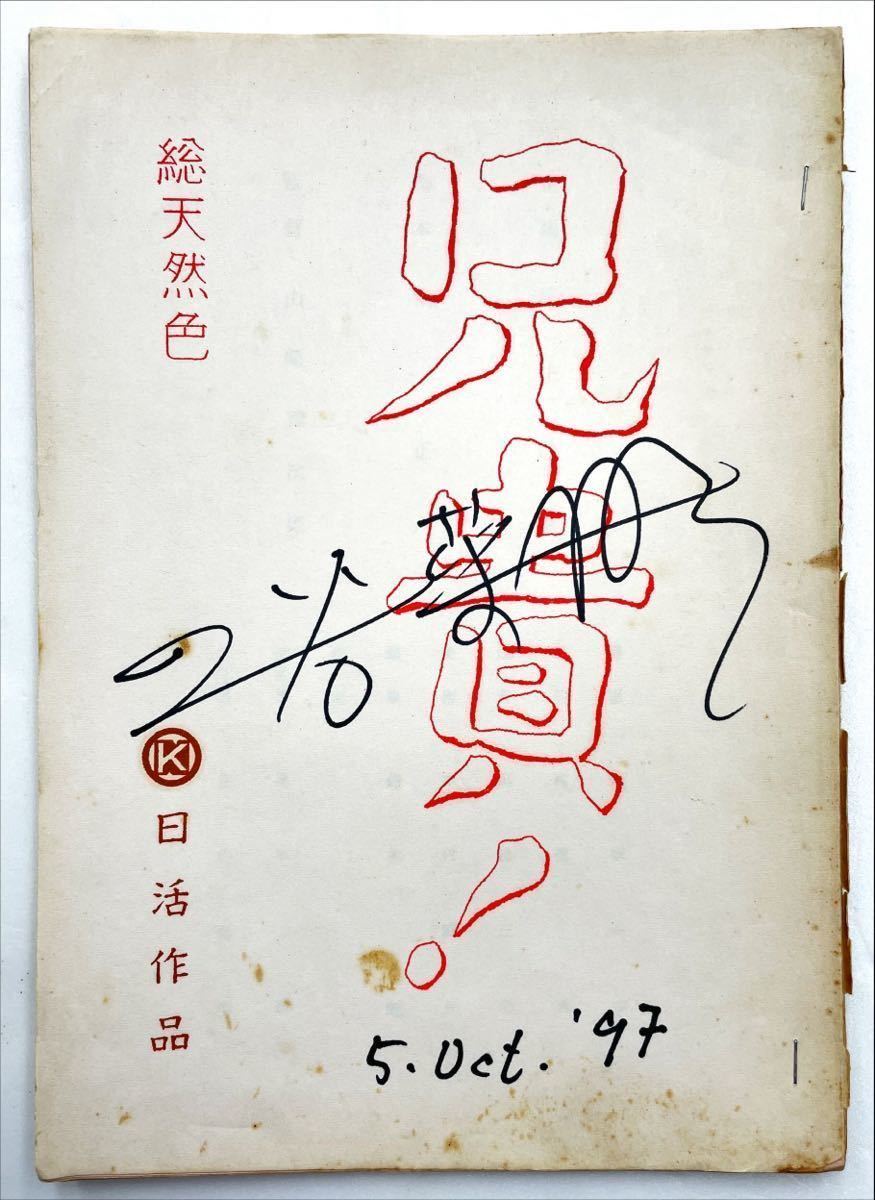 兄貴!
総天然色
K
日活作品
5. Oct. '97